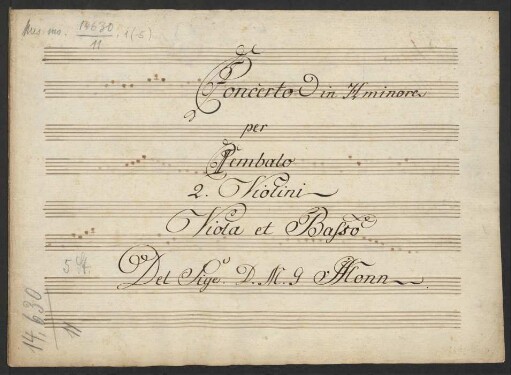 Mus. ms. 14630/11 1(-5)
Concerto in H minore
per
Cembalo
2. Violini
Viola et Basso
Del Sigr. D. M. G Monn
14,630
11